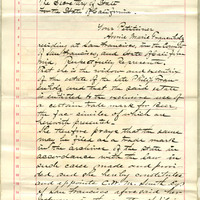 The Secretary of State
for the State of California.
Your Petitioner
Annie Marie Frauenholz
residing at San Francisco, for the County
of San Francisco, and State of California,
respectfully represents,
that she is the widow and executrix
of the estate of the late Philip Frauen
holz, and that the said estate
is entitled to the exclusive use of
a certain trade mark for Beer
the fac-similes of which are
herewith presented.
She therefore prays that the same
as a trade mark
in the archives of the state in
accordance with the law in
such cases made and provi
ded, and she hereby constitutes
and appoints C. W. M. Smith Esq
of San Francisco aforesaid her